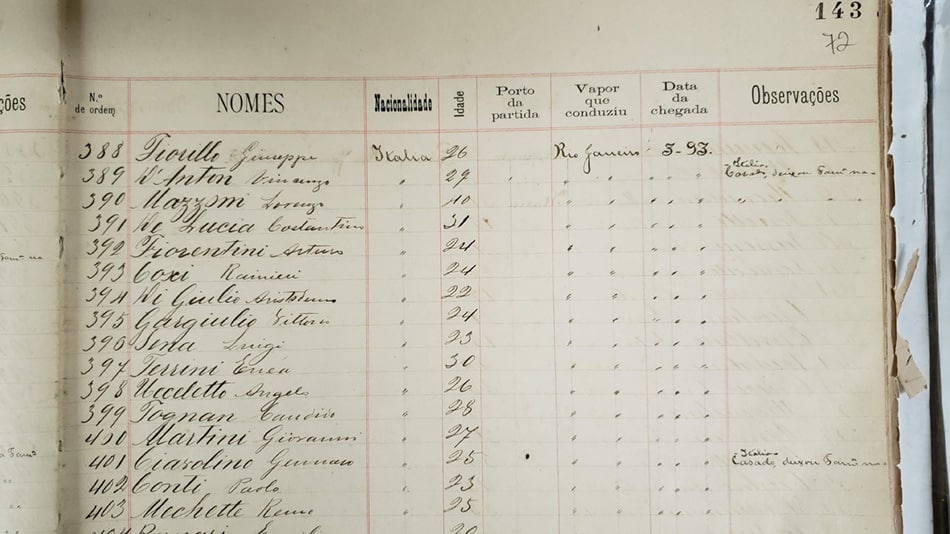 143
72
ções
N.º de ordem NOMES Nacionalidade Idade Porto da partida Vapor que conduziu Data da chegada Observações
388 Fiorillo Giuseppe Italia 26 Rio Janeiro 3-93.
389 D'Anton Vincenzo " 29 " " " " " Italia Casado, deixou Famª na
390 Mazzoni Lorenzo " 40 " " " " " " " "
391 De Lucia Costantino " 31 " " " " "
392 Fiorentini Arturo " 24 " " " " "
393 Coxi Rainieri " 24 " " " " "
394 Di Giulio Aristodemo " 22 " " " " "
395 Gargiulio Vittorio " 24 " " " " "
396 Sena Luigi " 23 " " " " "
397 Terrini Enéa " 30 " " " " "
398 Angelo " 26 " " " " "
399 Tognan Candido " 28 " " " " "
400 Martini Giovanni " 27 " " " " "
401 Ciardino Gennaro " 25 " " " " " Italia Casado, deixou Famª na
402 Conti Paolo " 23 " " " " "
403 Mechette Remo " 25 " " " " "